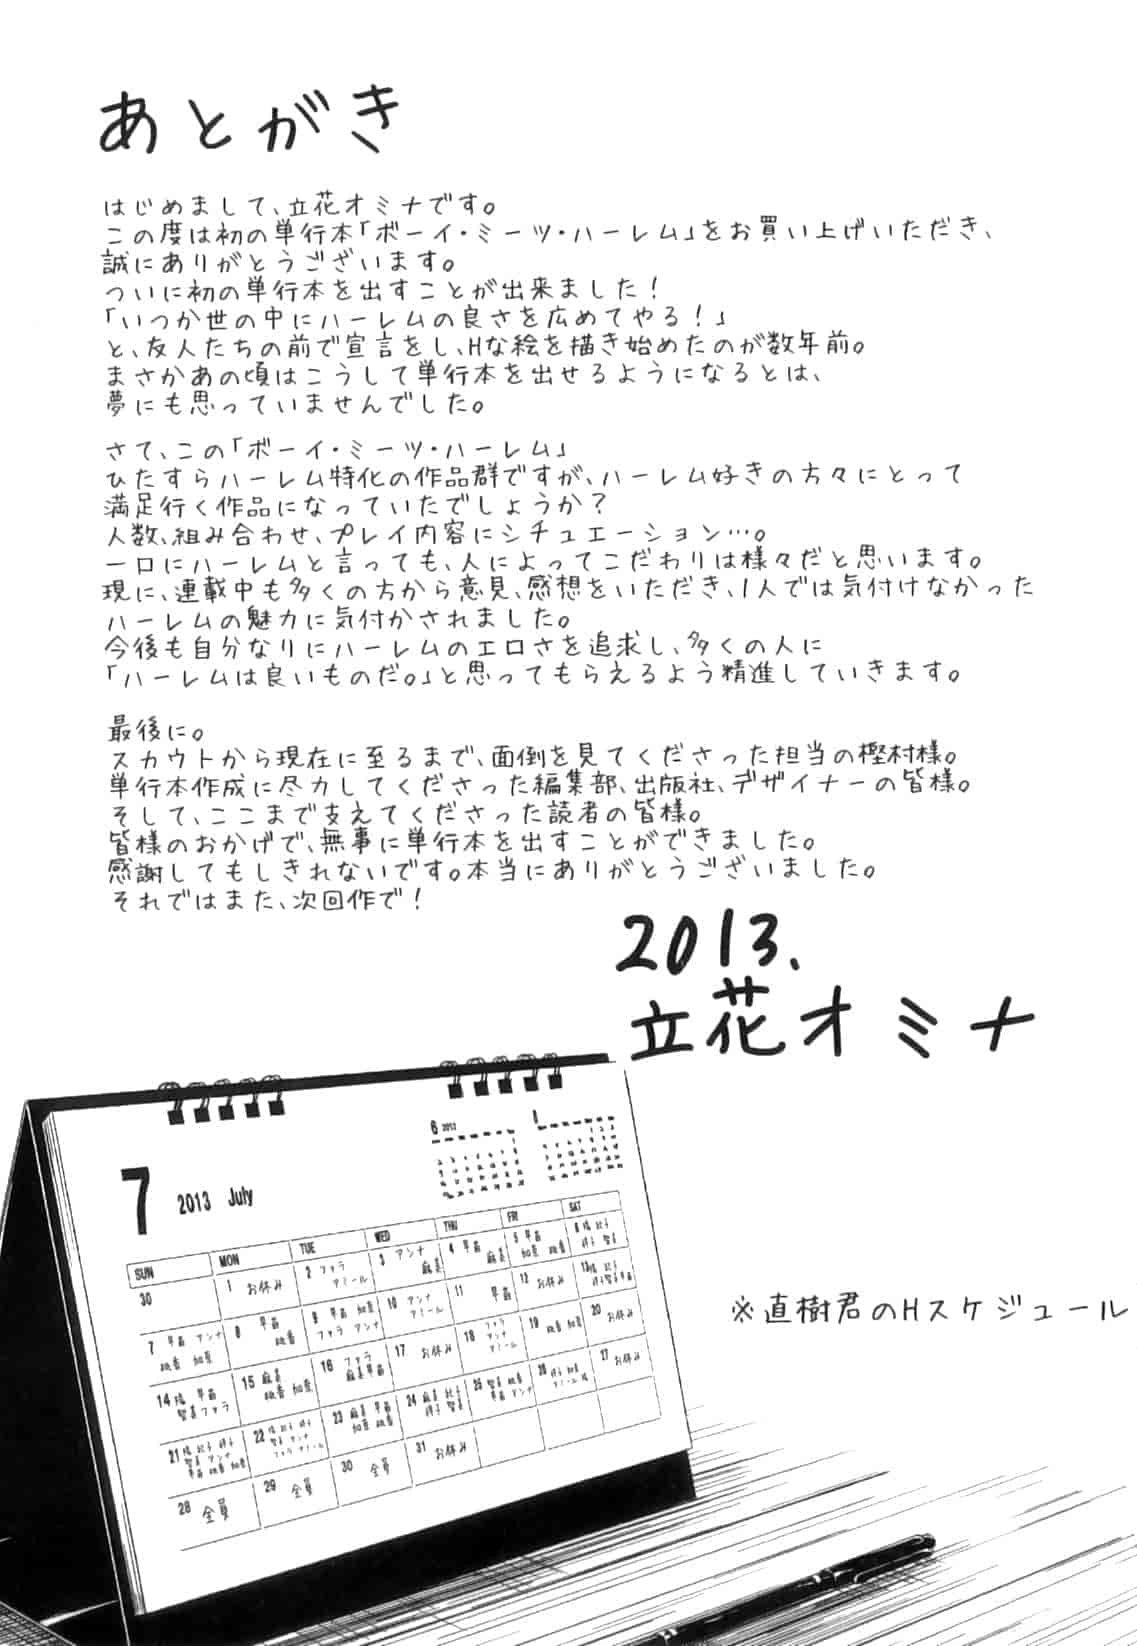 あとがき
はじめまして、立花オミナです。
この度は初の単行本「ボーイ・ミーツ・ハーレム」をお買い上げいただき、
誠にありがとうございます。
ついに初の単行本を出すことが出来ました！
「いつか世の中にハーレムの良さを広めてやる！」
と、友人たちの前で宣言をし、Hな絵を描き始めたのが数年前。
まさかあの頃はこうして単行本を出せるようになるとは、
夢にも思っていませんでした。
さて、この「ボーイ・ミーツ・ハーレム」
ひたすらハーレム特化の作品群ですが、ハーレム好きの方々にとって
満足行く作品になっていたでしょうか？
人数、組み合わせ、プレイ内容にシチュエーション…。
一口にハーレムと言っても、人によってこだわりは様々だと思います。
現に、連載中も多くの方から意見、感想をいただき、1人では気付けなかった
ハーレムの魅力に気付かされました。
今後も自分なりにハーレムのエロさを追求し、多くの人に
「ハーレムは良いものだ。」と思ってもらえるよう精進していきます。
最後に。
スカウトから現在に至るまで、面倒を見てくださった担当の樫村様。
単行本作成に尽力してくださった編集部、出版社、デザイナーの皆様。
そして、ここまで支えてくださった読者の皆様。
皆様のおかげで、無事に単行本を出すことができました。
感謝してもしきれないです。本当にありがとうございました。
それではまた、次回作で！
2013.
立花オミナ
7 2013 July
6 2013
SUN MON TUE WED THU FRI SAT
30
1 お休み
2 ファラ アミール
3 アンナ 麻美
4 早苗 麻美
5 早苗 加奈 桃香
6
7 早苗 アンナ 桃香 加奈
8 早苗 桃香
9 早苗 加奈 ファラ アンナ
10 アンナ アミール
11 早苗
12 お休み
13
14 早苗 ファラ
15 麻美 桃香 加奈
16 ファラ 麻美 早苗
17 お休み
18 ファラ アンナ アミール
19 桃香 加奈
20 お休み
21 アンナ 早苗 桃香 加奈
22 アンナ ファラ アミール
23 麻美 早苗 加奈 桃香
24 麻美
25 桃香 早苗 アンナ
26 加奈 アミール
27 お休み
28 全員
29 全員
30 全員
31 お休み
※直樹君のHスケジュール